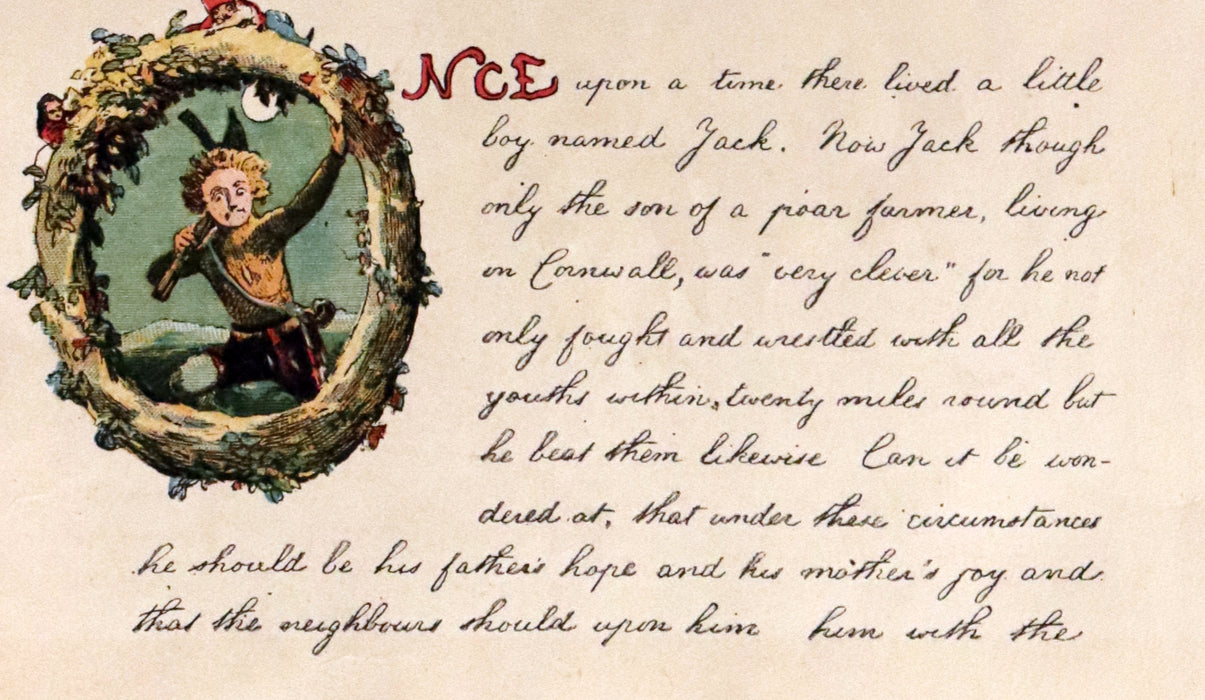 ONCE upon a time there lived a little
boy named Jack. Now Jack though
only the son of a poar farmer, living
in Cornwall, was "very clever" for he not
only fought and wrestled with all the
youths within, twenty miles round but
he beat them likewise Can it be won-
dered at, that under these circumstances
he should be his father's hope and his mother's joy and
that the neighbours should upon him him with the